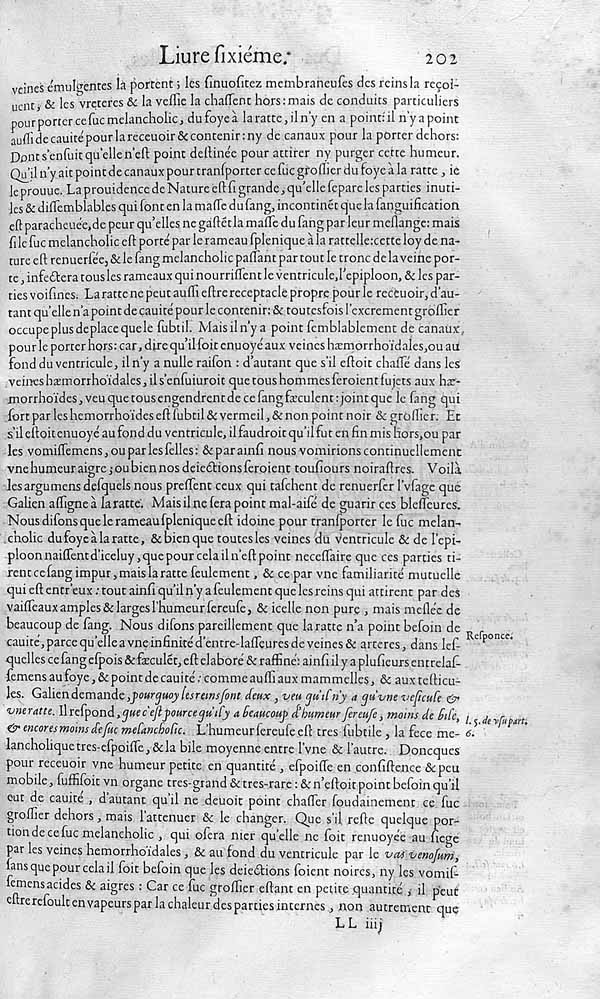 Liure ſixiéme. 202
veines émulgentes la portent; les ſinuoſitez membraneuſes des reins la reçoi-
uent, & les vreteres & la veſſie la chaſſent hors: mais de conduits particuliers
pour porter ce ſuc melancholic, du foye à la ratte, il n'y en a point: il n'y a point
auſſi de cauité pour la receuoir & contenir: ny de canaux pour la porter dehors:
Dont s'enſuit qu'elle n'eſt point deſtinée pour attirer ny purger cette humeur.
Qu'il n'y ait point de canaux pour tranſporter ce ſuc groſſier du foye à la ratte, ie
le prouue. La prouidence de Nature eſt ſi grande, qu'elle ſepare les parties inuti-
les & diſſemblables qui ſont en la maſſe du ſang, incontinēt que la ſanguification
eſt paracheuée, de peur qu'elles ne gaſtēt la maſſe du ſang par leur meſlange: mais
ſi le ſuc melancholic eſt porté par le rameau ſplenique à la rattelle: cette loy de na-
ture eſt renuerſée, & le ſang melancholic paſſant par tout le tronc de la veine por-
te, infectera tous les rameaux qui nourriſſent le ventricule, l'epiploon, & les par-
ties voiſines. La ratte ne peut auſſi eſtre receptacle propre pour le receuoir, d'au-
tant qu'elle n'a point de cauité pour le contenir: & toutesfois l'excrement groſſier
occupe plus de place que le ſubtil. Mais il n'y a point ſemblablement de canaux,
pour le porter hors: car, dire qu'il ſoit enuoyé aux veines hæmorrhoïdales, ou au
fond du ventricule, il n'y a nulle raiſon : d'autant que s'il eſtoit chaſſé dans les
veines hæmorrhoïdales, il s'enſuiuroit que tous hommes ſeroient ſujets aux hæ-
morrhoïdes, veu que tous engendrent de ce ſang fæculent: joint que le ſang qui
ſort par les hemorrhoïdes eſt ſubtil & vermeil, & non point noir & groſſier. Et
s'il eſtoit enuoyé au fond du ventricule, il faudroit qu'il fut en fin mis hors, ou par
les vomiſſemens, ou par les ſelles: & par ainſi nous vomirions continuellement
vne humeur aigre; ou bien nos deiections ſeroient touſiours noiraſtres. Voilà
les argumens deſquels nous preſſent ceux qui taſchent de renuerſer l'vſage que
Galien aſſigne à la ratte. Mais il ne ſera point mal-aiſé de guarir ces bleſſeures.
Nous diſons que le rameau ſplenique eſt idoine pour tranſporter le ſuc melan-
cholic du foye à la ratte, & bien que toutes les veines du ventricule & de l'epi-
ploon naiſſent d'iceluy, que pour cela il n'eſt point neceſſaire que ces parties ti-
rent ce ſang impur, mais la ratte ſeulement, & ce par vne familiarité mutuelle
qui eſt entr'eux: tout ainſi qu'il n'y a ſeulement que les reins qui attirent par des
vaiſſeaux amples & larges l'humeur ſereuſe, & icelle non pure, mais meſlée de
beaucoup de ſang. Nous diſons pareillement que la ratte n'a point beſoin de
cauité, parce qu'elle a vne infinité d'entre-laſſeures de veines & arteres, dans leſ-
Reſponce.
quelles ce ſang eſpois & fæculēt, eſt elaboré & raffiné: ainſi il y a pluſieurs entrelaſ-
ſemens au foye, & point de cauité: comme auſſi aux mammelles, & aux teſticu-
les. Galien demande, pourquoy les reins ſont deux, veu qu'il n'y a qu'vne veſicule &
vne ratte. Il reſpond, que c'eſt pource qu'il y a beaucoup d'humeur ſereuſe, moins de bile,
l. 5. de vſu part.
& encores moins de ſuc melancholic. L'humeur ſereuſe eſt tres ſubtile, la fece me-
6.
lancholique tres-eſpoiſſe, & la bile moyenne entre l'vne & l'autre. Doncques
pour receuoir vne humeur petite en quantité, eſpoiſſe en conſiſtence & peu
mobile, ſuffiſoit vn organe tres-grand & tres-rare: & n'eſtoit point beſoin qu'il
eut de cauité, d'autant qu'il ne deuoit point chaſſer ſoudainement ce ſuc
groſſier dehors, mais l'attenuer & le changer. Que s'il reſte quelque por-
tion de ce ſuc melancholic, qui oſera nier qu'elle ne ſoit renuoyée au ſiege
par les veines hemorrhoïdales, & au fond du ventricule par le vas venoſum,
ſans que pour cela il ſoit beſoin que les deiections ſoient noires, ny les vomiſ-
ſemens acides & aigres : Car ce ſuc groſſier eſtant en petite quantité, il peut
eſtre reſoult en vapeurs par la chaleur des parties internes, non autrement que
LL iiij